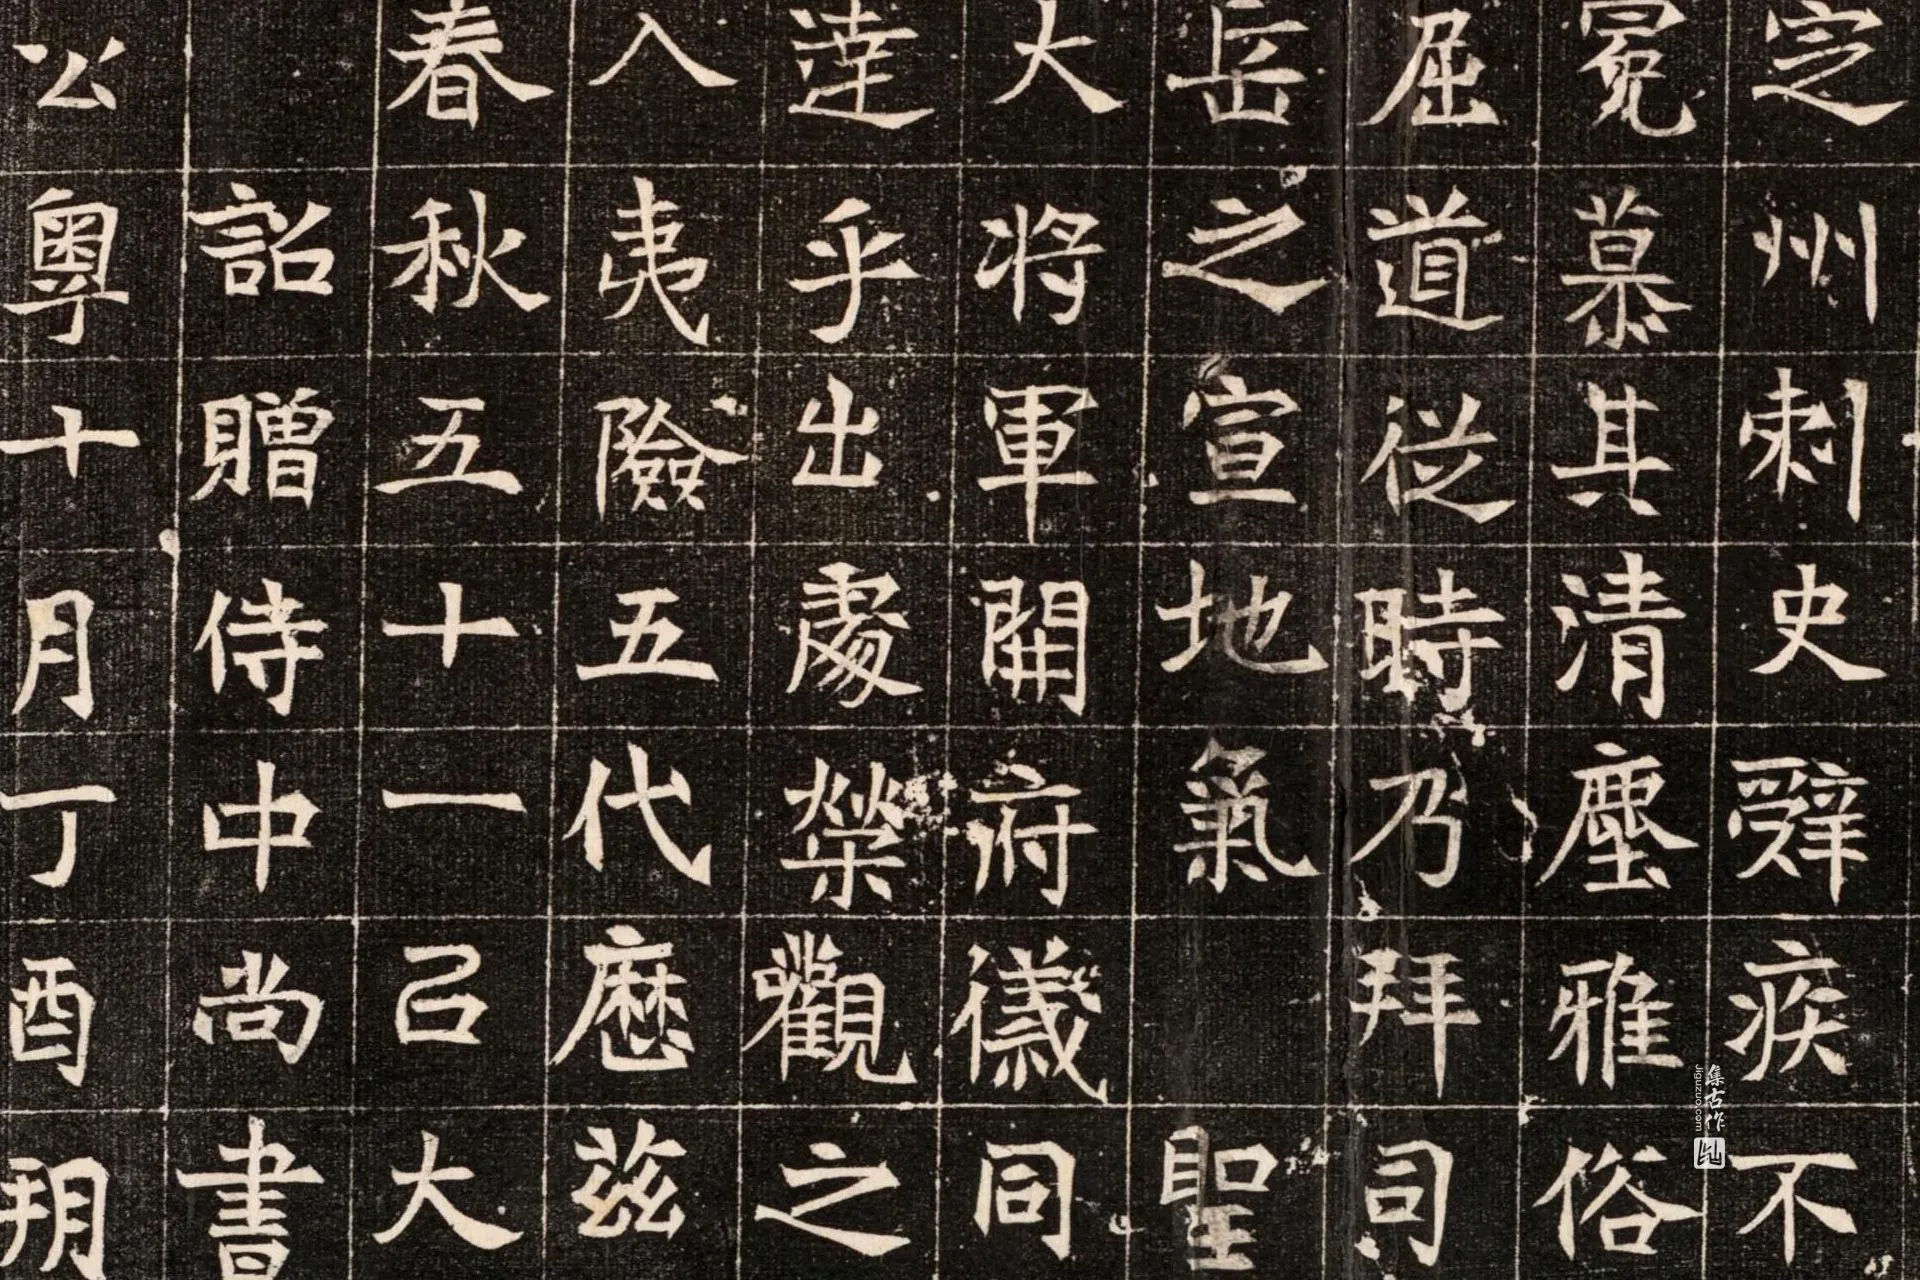 定州刺史辤疾不
冕慕其清塵雅俗
屈道從時乃拜司
岳之宣地氣 聖
大将軍開府儀同
達乎出處榮觀之
入夷險五代歷茲
春秋五十一㠯大
詔贈侍中尚書
公粤十月丁酉朔
集古作
jiguzuo.com